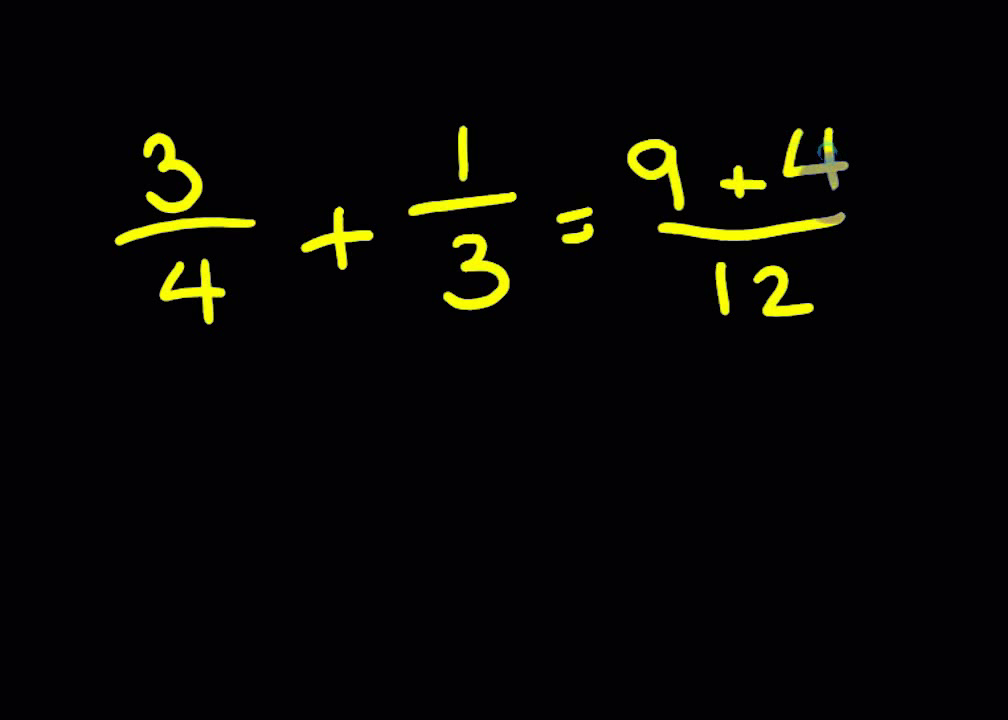 3/4 + 1/3 = (9 + 4)/12